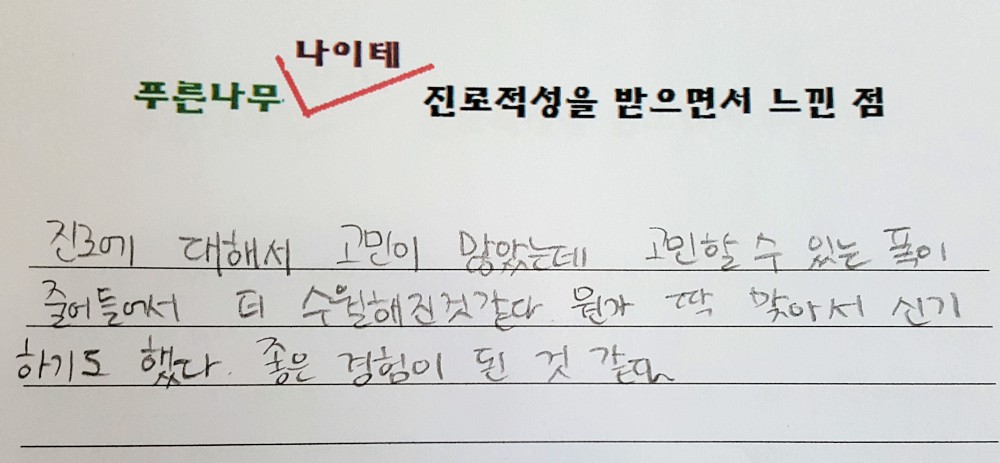 나이테
푸른나무 진로적성을 받으면서 느낀 점
진로에 대해서 고민이 많았는데 고민할 수 있는 폭이
줄어들어서 더 수월해진것같다. 뭔가 딱 맞아서 신기
하기도 했다. 좋은 경험이 된 것 같다